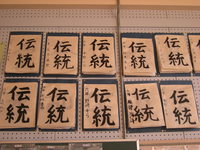 伝統
伝統
伝統
伝統
伝統
伝統
伝統
伝統
伝統
伝統